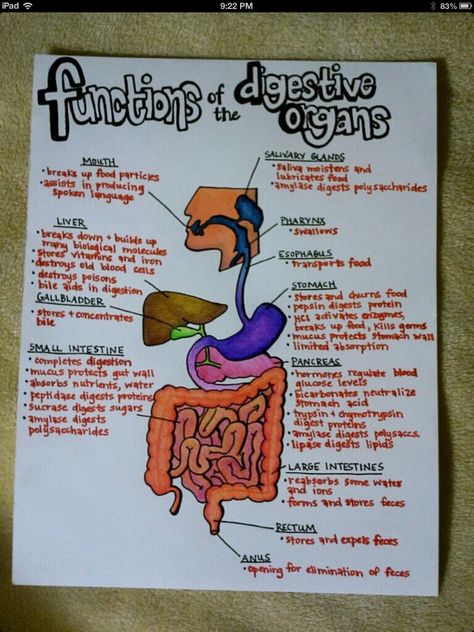 iPad
9:22 PM
83%
functions of the digestive organs
MOUTH
• breaks up food particles
• assists in producing
spoken language
SALIVARY GLANDS
• saliva moistens and
lubricates food
• amylase digests polysaccharides
PHARYNX
• swallows
ESOPHAGUS
• transports food
LIVER
• breaks down + builds up
many biological molecules
• stores vitamins and iron
• destroys old blood cells
• destroys poisons
• bile aids in digestion
GALLBLADDER
• stores + concentrates
bile
STOMACH
• stores and churns food
• pepsin digests protein
• HCl activates enzymes,
breaks up food, kills germs
• mucus protects stomach wall
• limited absorption
SMALL INTESTINE
• completes digestion
• mucus protects gut wall
• absorbs nutrients, water
• peptidase digests proteins
• sucrase digests sugars
• amylase digests
polysaccharides
PANCREAS
• hormones regulate blood
glucose levels
• bicarbonates neutralize
stomach acid
• trypsin + chymotrypsin
digest proteins
• amylase digests polysaccs.
• lipase digests lipids
LARGE INTESTINES
• reabsorbs some water
and ions
• forms and stores feces
RECTUM
• stores and expels feces
ANUS
• opening for elimination of feces